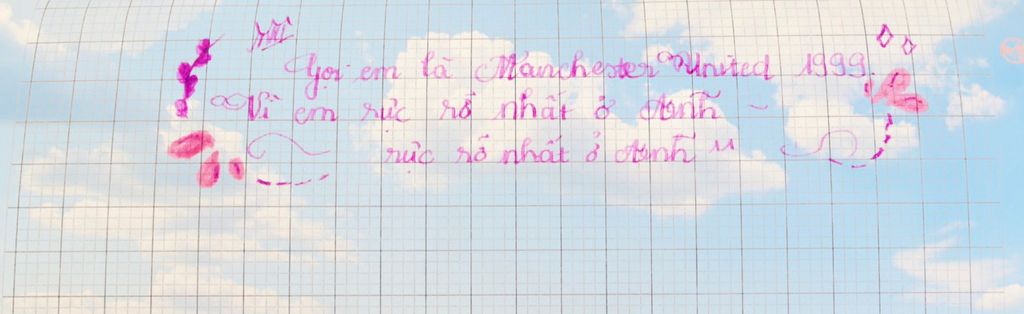 Gọi em là Manchester United 1999.
Vì em rực rỡ nhất ở Anh ~
rực rỡ nhất ở Anh "